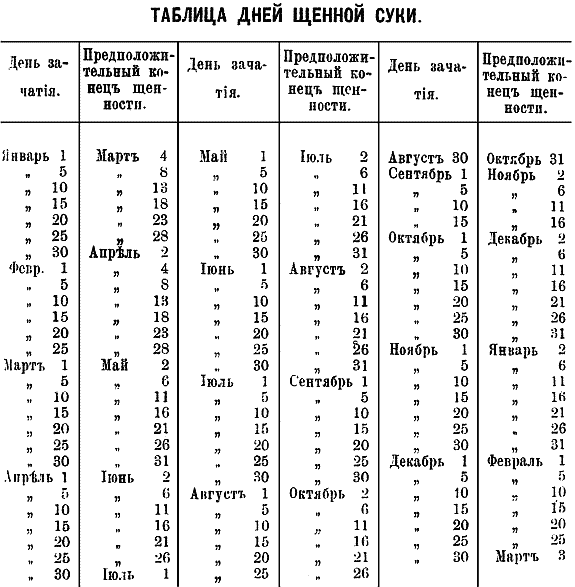 ТАБЛИЦА ДНЕЙ ЩЕННОЙ СУКИ.
День за-
чатія.
Предположи-
тельный ко-
нецъ щен-
ности.
День зача-
тія.
Предположи-
тельный ко-
нецъ щен-
ности.
День зача-
тія.
Предположи-
тельный ко-
нецъ щен-
ности.
Январь 1 Мартъ 4 Май 1 Іюль 2 Августъ 30 Октябрь 31
„ 5 „ 8 „ 5 „ 6 Сентябрь 1 Ноябрь 2
„ 10 „ 13 „ 10 „ 11 „ 5 „ 6
„ 15 „ 18 „ 15 „ 16 „ 10 „ 11
„ 20 „ 23 „ 20 „ 21 „ 15 „ 16
„ 25 „ 28 „ 25 „ 26 Октябрь 1 Декабрь 2
„ 30 Апрѣль 2 „ 30 „ 31 „ 5 „ 6
Февр. 1 „ 4 Іюнь 1 Августъ 2 „ 10 „ 11
„ 5 „ 8 „ 5 „ 6 „ 15 „ 16
„ 10 „ 13 „ 10 „ 11 „ 20 „ 21
„ 15 „ 18 „ 15 „ 16 „ 25 „ 26
„ 20 „ 23 „ 20 „ 21 „ 30 „ 31
„ 25 „ 28 „ 25 „ 26 Ноябрь 1 Январь 2
Мартъ 1 Май 2 „ 30 „ 31 „ 5 „ 6
„ 5 „ 6 Іюль 1 Сентябрь 1 „ 10 „ 11
„ 10 „ 11 „ 5 „ 5 „ 15 „ 16
„ 15 „ 16 „ 10 „ 10 „ 20 „ 21
„ 20 „ 21 „ 15 „ 15 „ 25 „ 26
„ 25 „ 26 „ 20 „ 20 „ 30 „ 31
„ 30 „ 31 „ 25 „ 25 Декабрь 1 Февраль 1
Апрѣль 1 Іюнь 2 „ 30 „ 30 „ 5 „ 5
„ 5 „ 6 Августъ 1 Октябрь 2 „ 10 „ 10
„ 10 „ 11 „ 5 „ 6 „ 15 „ 15
„ 15 „ 16 „ 10 „ 11 „ 20 „ 20
„ 20 „ 21 „ 15 „ 16 „ 25 „ 25
„ 25 „ 26 „ 20 „ 21 „ 30 Мартъ 3
„ 30 Іюль 1 „ 25 „ 26